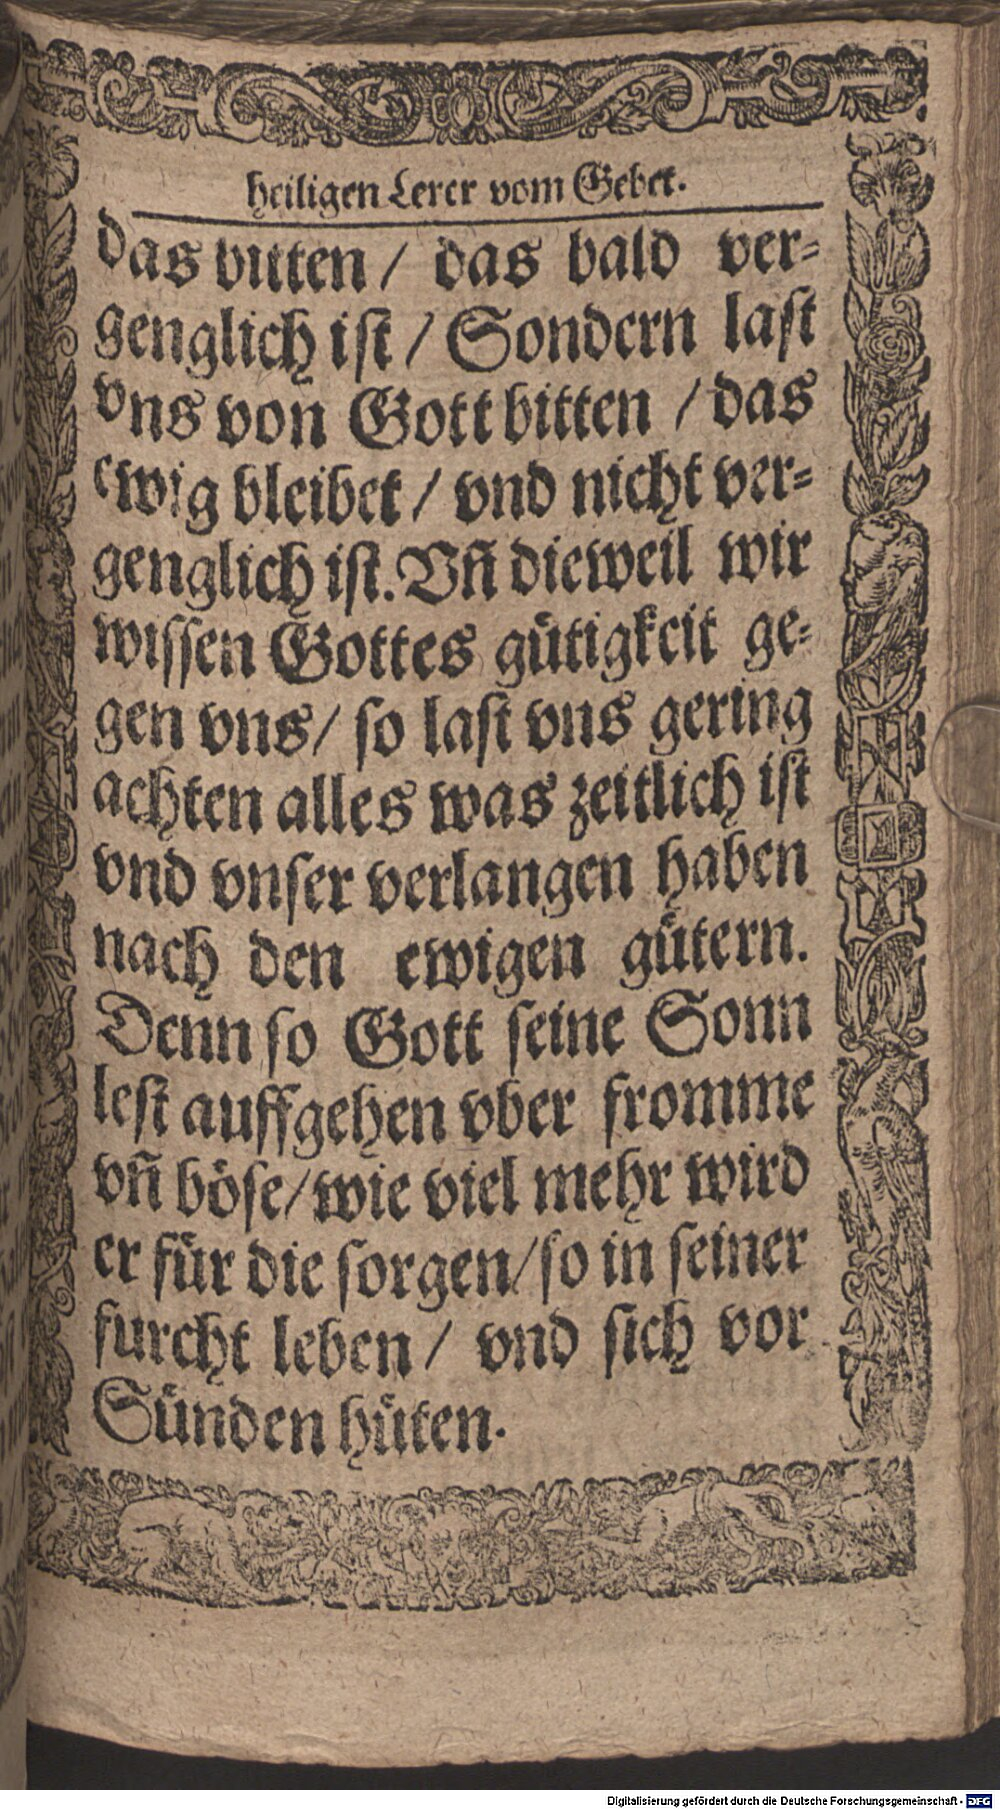 heiligen Lerer vom Gebet.
das bitten / das bald ver⸗
genglich ist / Sondern last
vns von Gott bitten / das
ewig bleibet / vnd nicht ver⸗
genglich ist. Vñ dieweil wir
wissen Gottes gütigkeit ge⸗
gen vns / so last vns gering
achten alles was zeitlich ist
vnd vnser verlangen haben
nach den ewigen gütern.
Denn so Gott seine Sonn
lest auffgehen vber fromme
vñ böse / wie viel mehr wird
er für die sorgen / so in seiner
furcht leben / vnd sich vor
Sünden hüten.
Digitalisierung gefördert durch die Deutsche Forschungsgemeinschaft - DFG